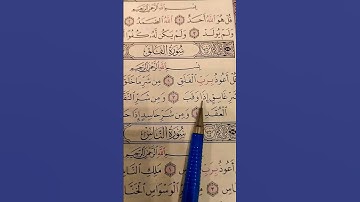 بِسْمِ اللَّهِ الرَّحْمَٰنِ الرَّحِيمِ
قُلْ هُوَ اللَّهُ أَحَدٌ ١ اللَّهُ الصَّمَدُ ٢
وَلَمْ يُولَدْ ٣ وَلَمْ يَكُن لَّهُ كُفُوًا
سُورَةُ الْفَلَقِ
بِسْمِ اللَّهِ الرَّحْمَٰنِ الرَّحِيمِ
قُلْ أَعُوذُ بِرَبِّ الْفَلَقِ ١ مِن شَرِّ مَا خَلَقَ
شَرِّ غَاسِقٍ إِذَا وَقَبَ ٣ وَمِن شَرِّ
الْعُقَدِ ٤ وَمِن شَرِّ حَاسِدٍ إِذَا
سُورَةُ النَّاسِ
بِسْمِ اللَّهِ الرَّحْمَٰنِ الرَّحِيمِ
أَعُوذُ بِرَبِّ النَّاسِ ١ مَلِكِ
٣ مِن شَرِّ الْوَسْوَاسِ